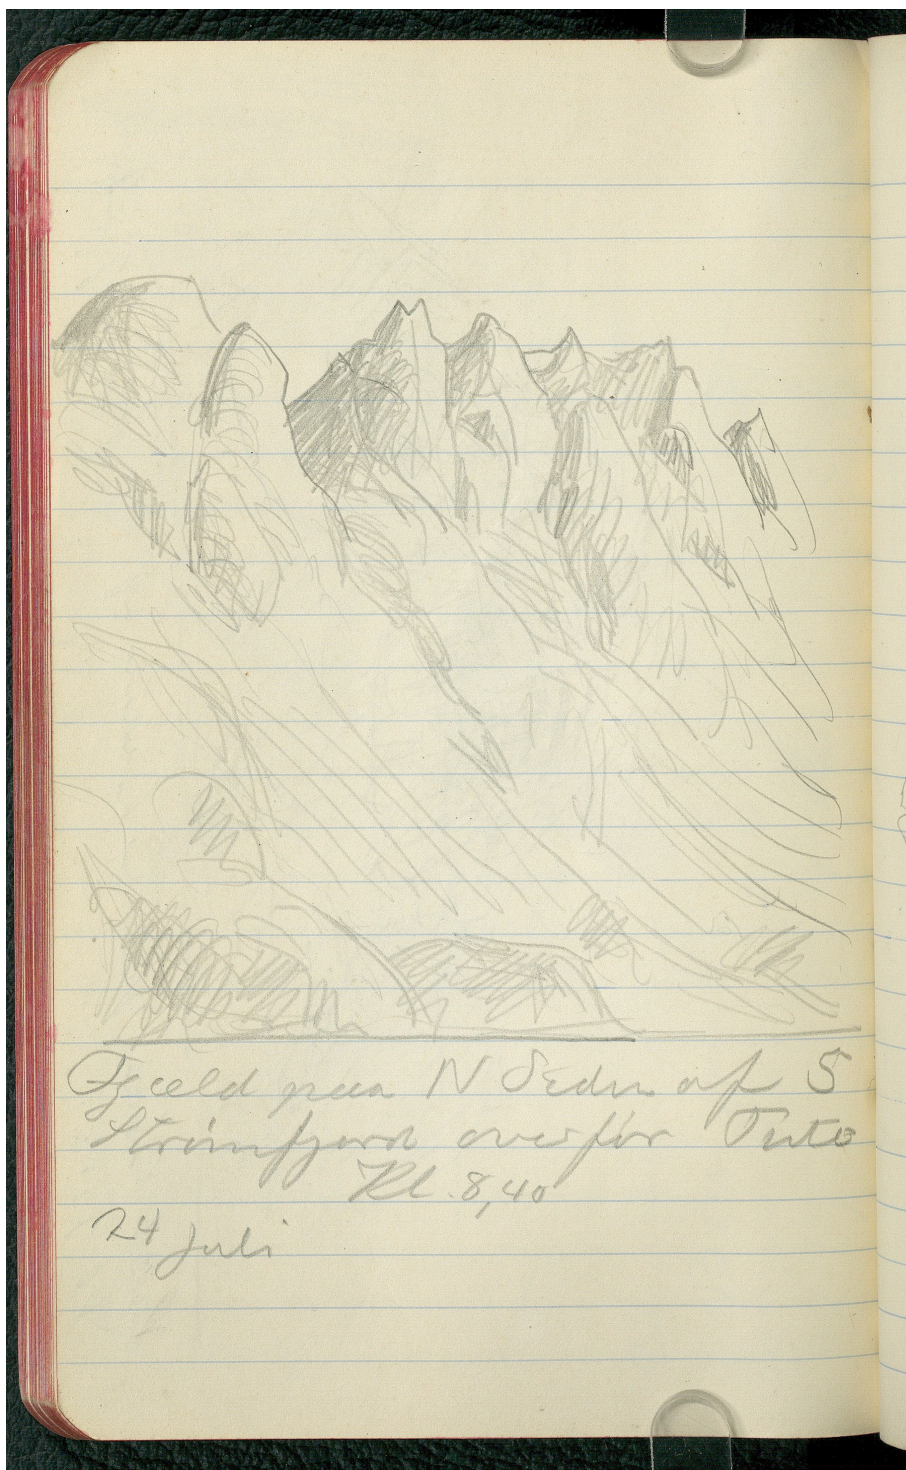 Fjæld paa N Siden af S
Strømfjord overfor Tuto
Kl. 8,40
24 Juli